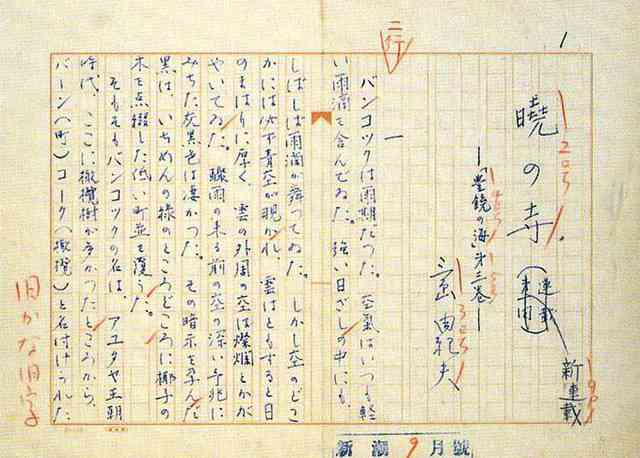 1
曉の寺
新連載
―「豊饒の海」第三巻―
三島由紀夫
二行
一
バンコックは雨期だつた。空氣はいつも輕
い雨滴を含んでゐた。強い日ざしの中にも、
しばしば雨滴が舞つてゐた。しかし空のどこ
かには必ず青空が覗かれ、雲はともすると日
のまはりに厚く、雲の外周の空は燦爛とかが
やいてゐた。驟雨の来る前の空の深い予兆に
みちた灰黑色は凄かつた。その暗示を孕んだ
黑は、いちめんの緑のところどころに椰子の
木を点綴した低い町並を覆うた。
そもそもバンコックの名は、アユタヤ王朝
時代、ここに橄欖樹が多かつたところから、
バーン(町)コーク(橄欖)と名付けられた
旧かな旧字
新潮9月號